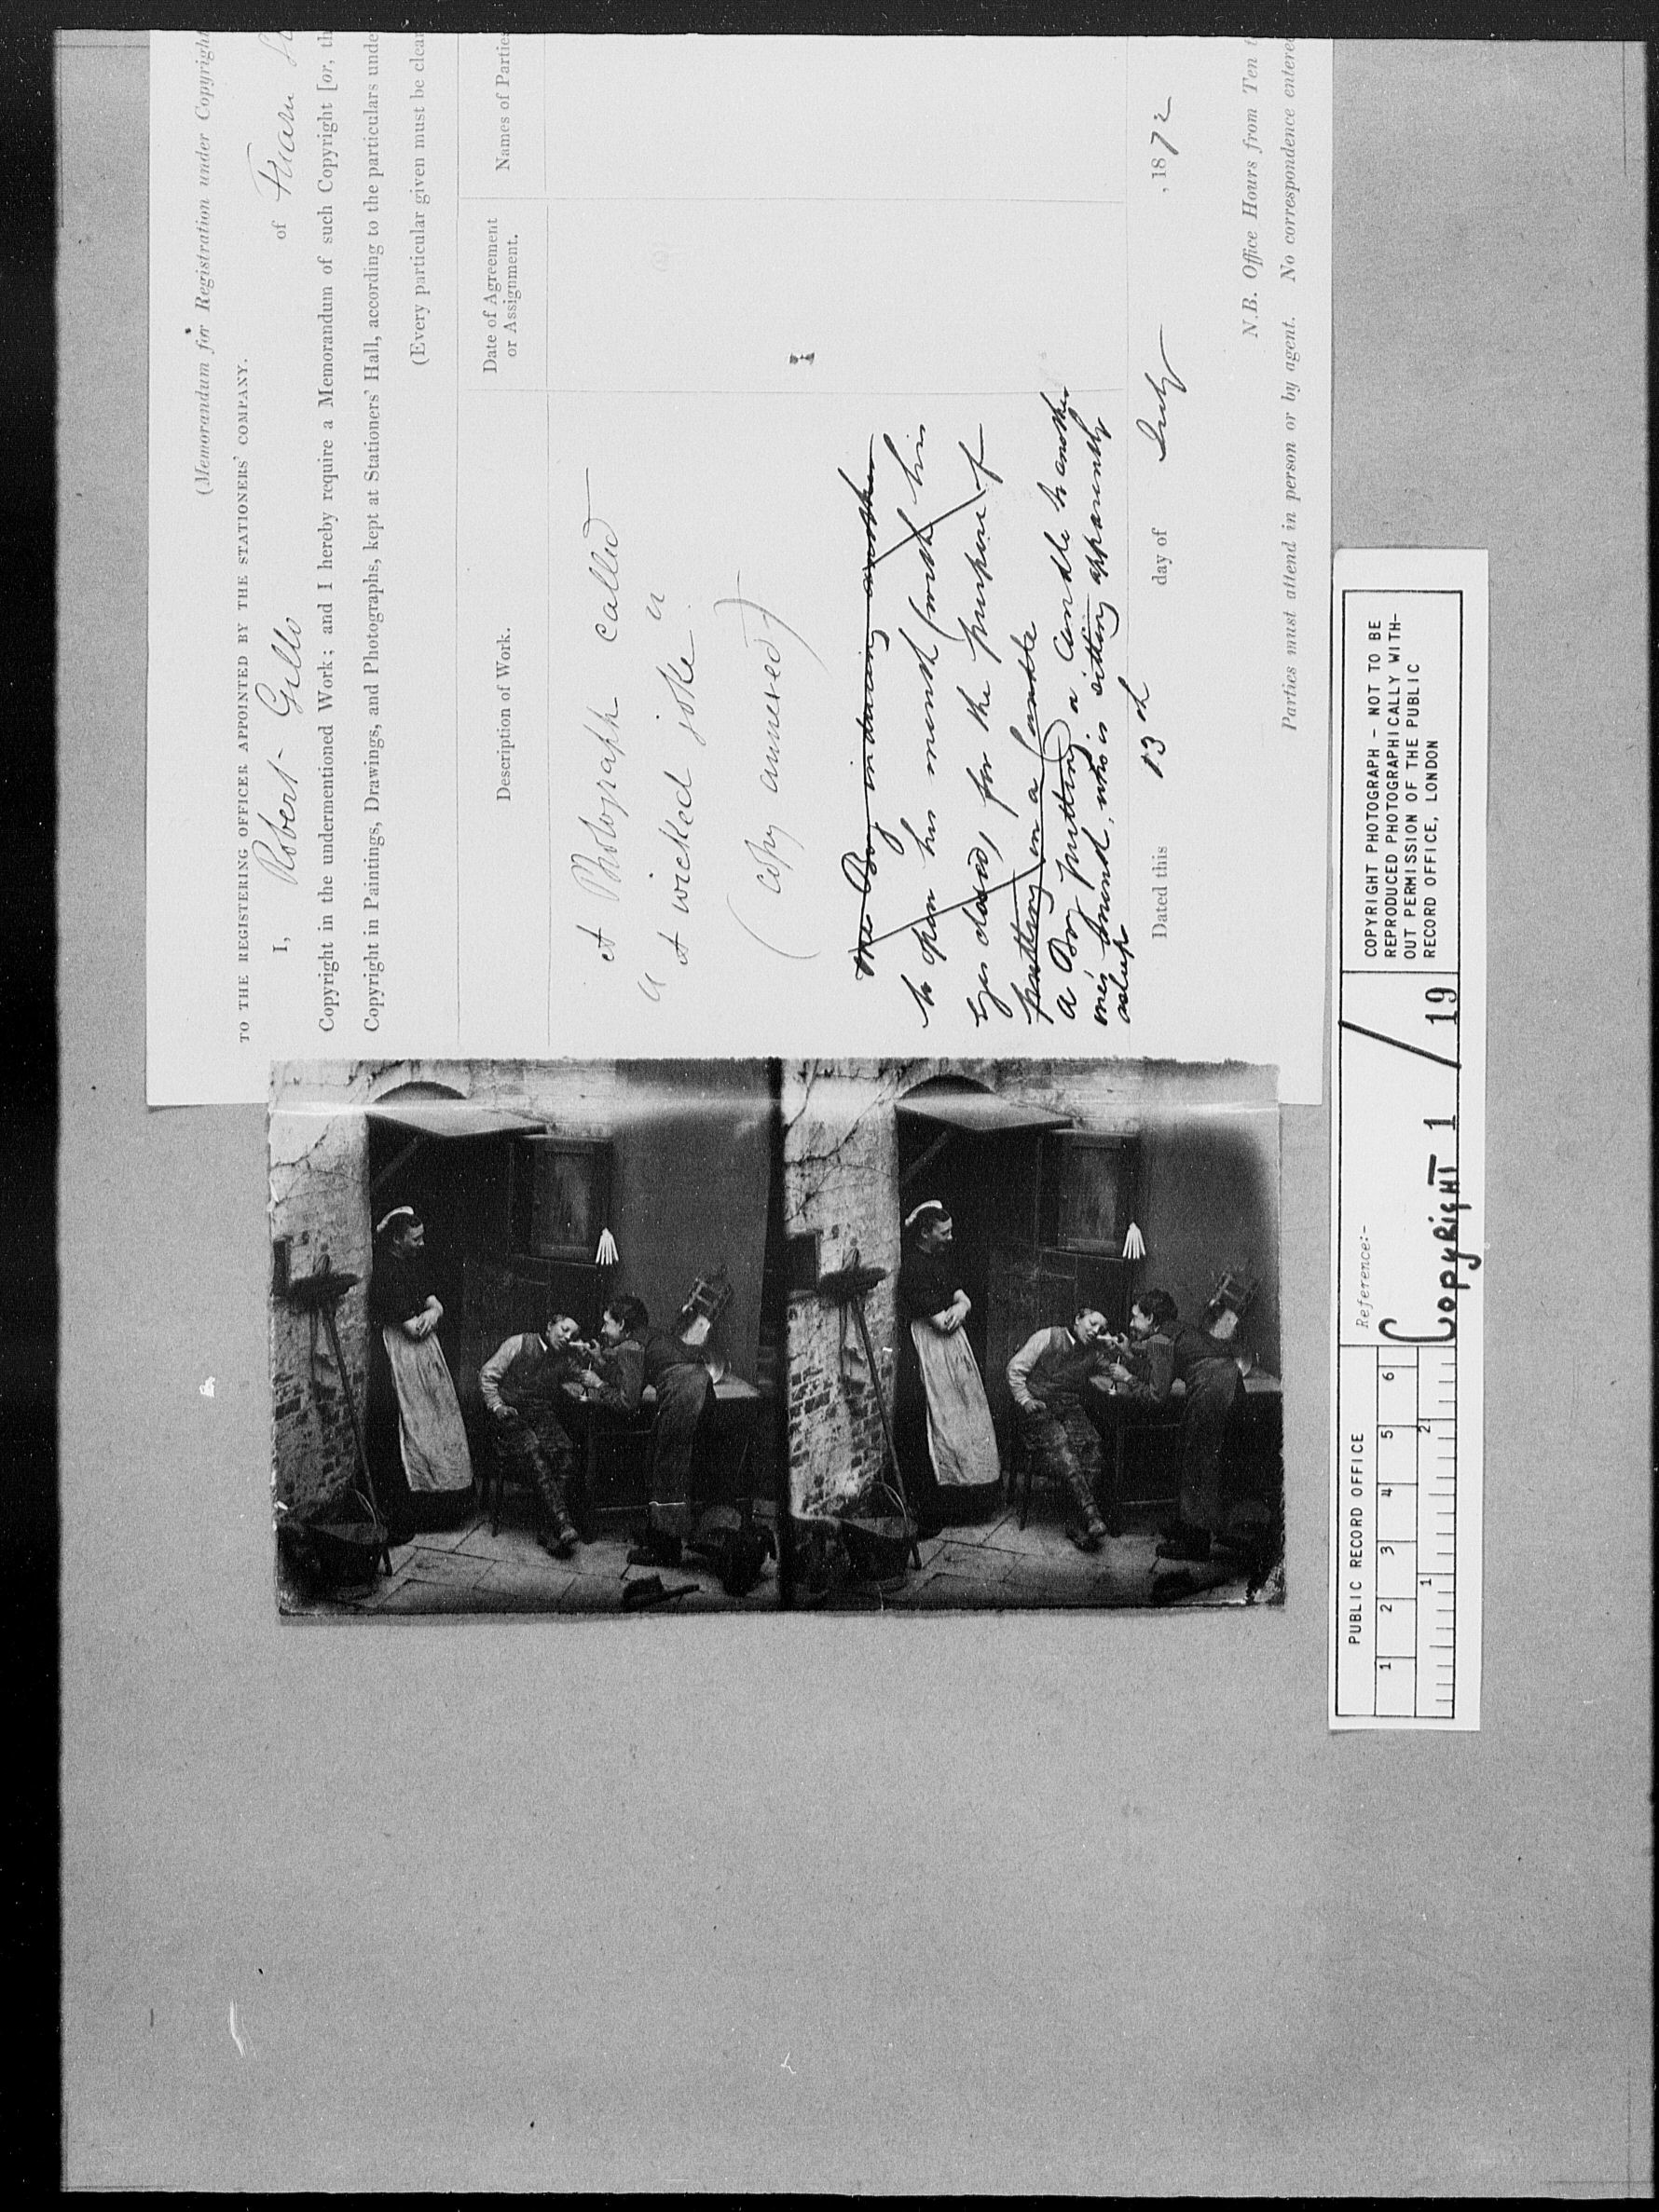 (Memorandum for Registration under Copyright
TO THE REGISTERING OFFICER APPOINTED BY THE STATIONERS' COMPANY.
I, Robert Gillo of
Copyright in the undermentioned Work; and I hereby require a Memorandum of such Copyright [or, th
Copyright in Paintings, Drawings, and Photographs, kept at Stationers' Hall, according to the particulars unde
(Every particular given must be clear
Description of Work.
Date of Agreement
or Assignment.
Names of Partie
A Photograph called
"A wicked joke"
(copy annexed)
One Boy inducing another
to open his mouth (with his
eyes closed) for the purpose of
putting in a candle
a Boy putting a Candle to another
one's mouth, who is sitting apparently
asleep
Dated this 13th day of July , 1872
N.B. Office Hours from Ten t
Parties must attend in person or by agent. No correspondence entered
PUBLIC RECORD OFFICE
1 2 3 4 5 6
1 2
Reference:-
COPYRIGHT 1 / 19
COPYRIGHT PHOTOGRAPH - NOT TO BE
REPRODUCED PHOTOGRAPHICALLY WITH-
OUT PERMISSION OF THE PUBLIC
RECORD OFFICE, LONDON